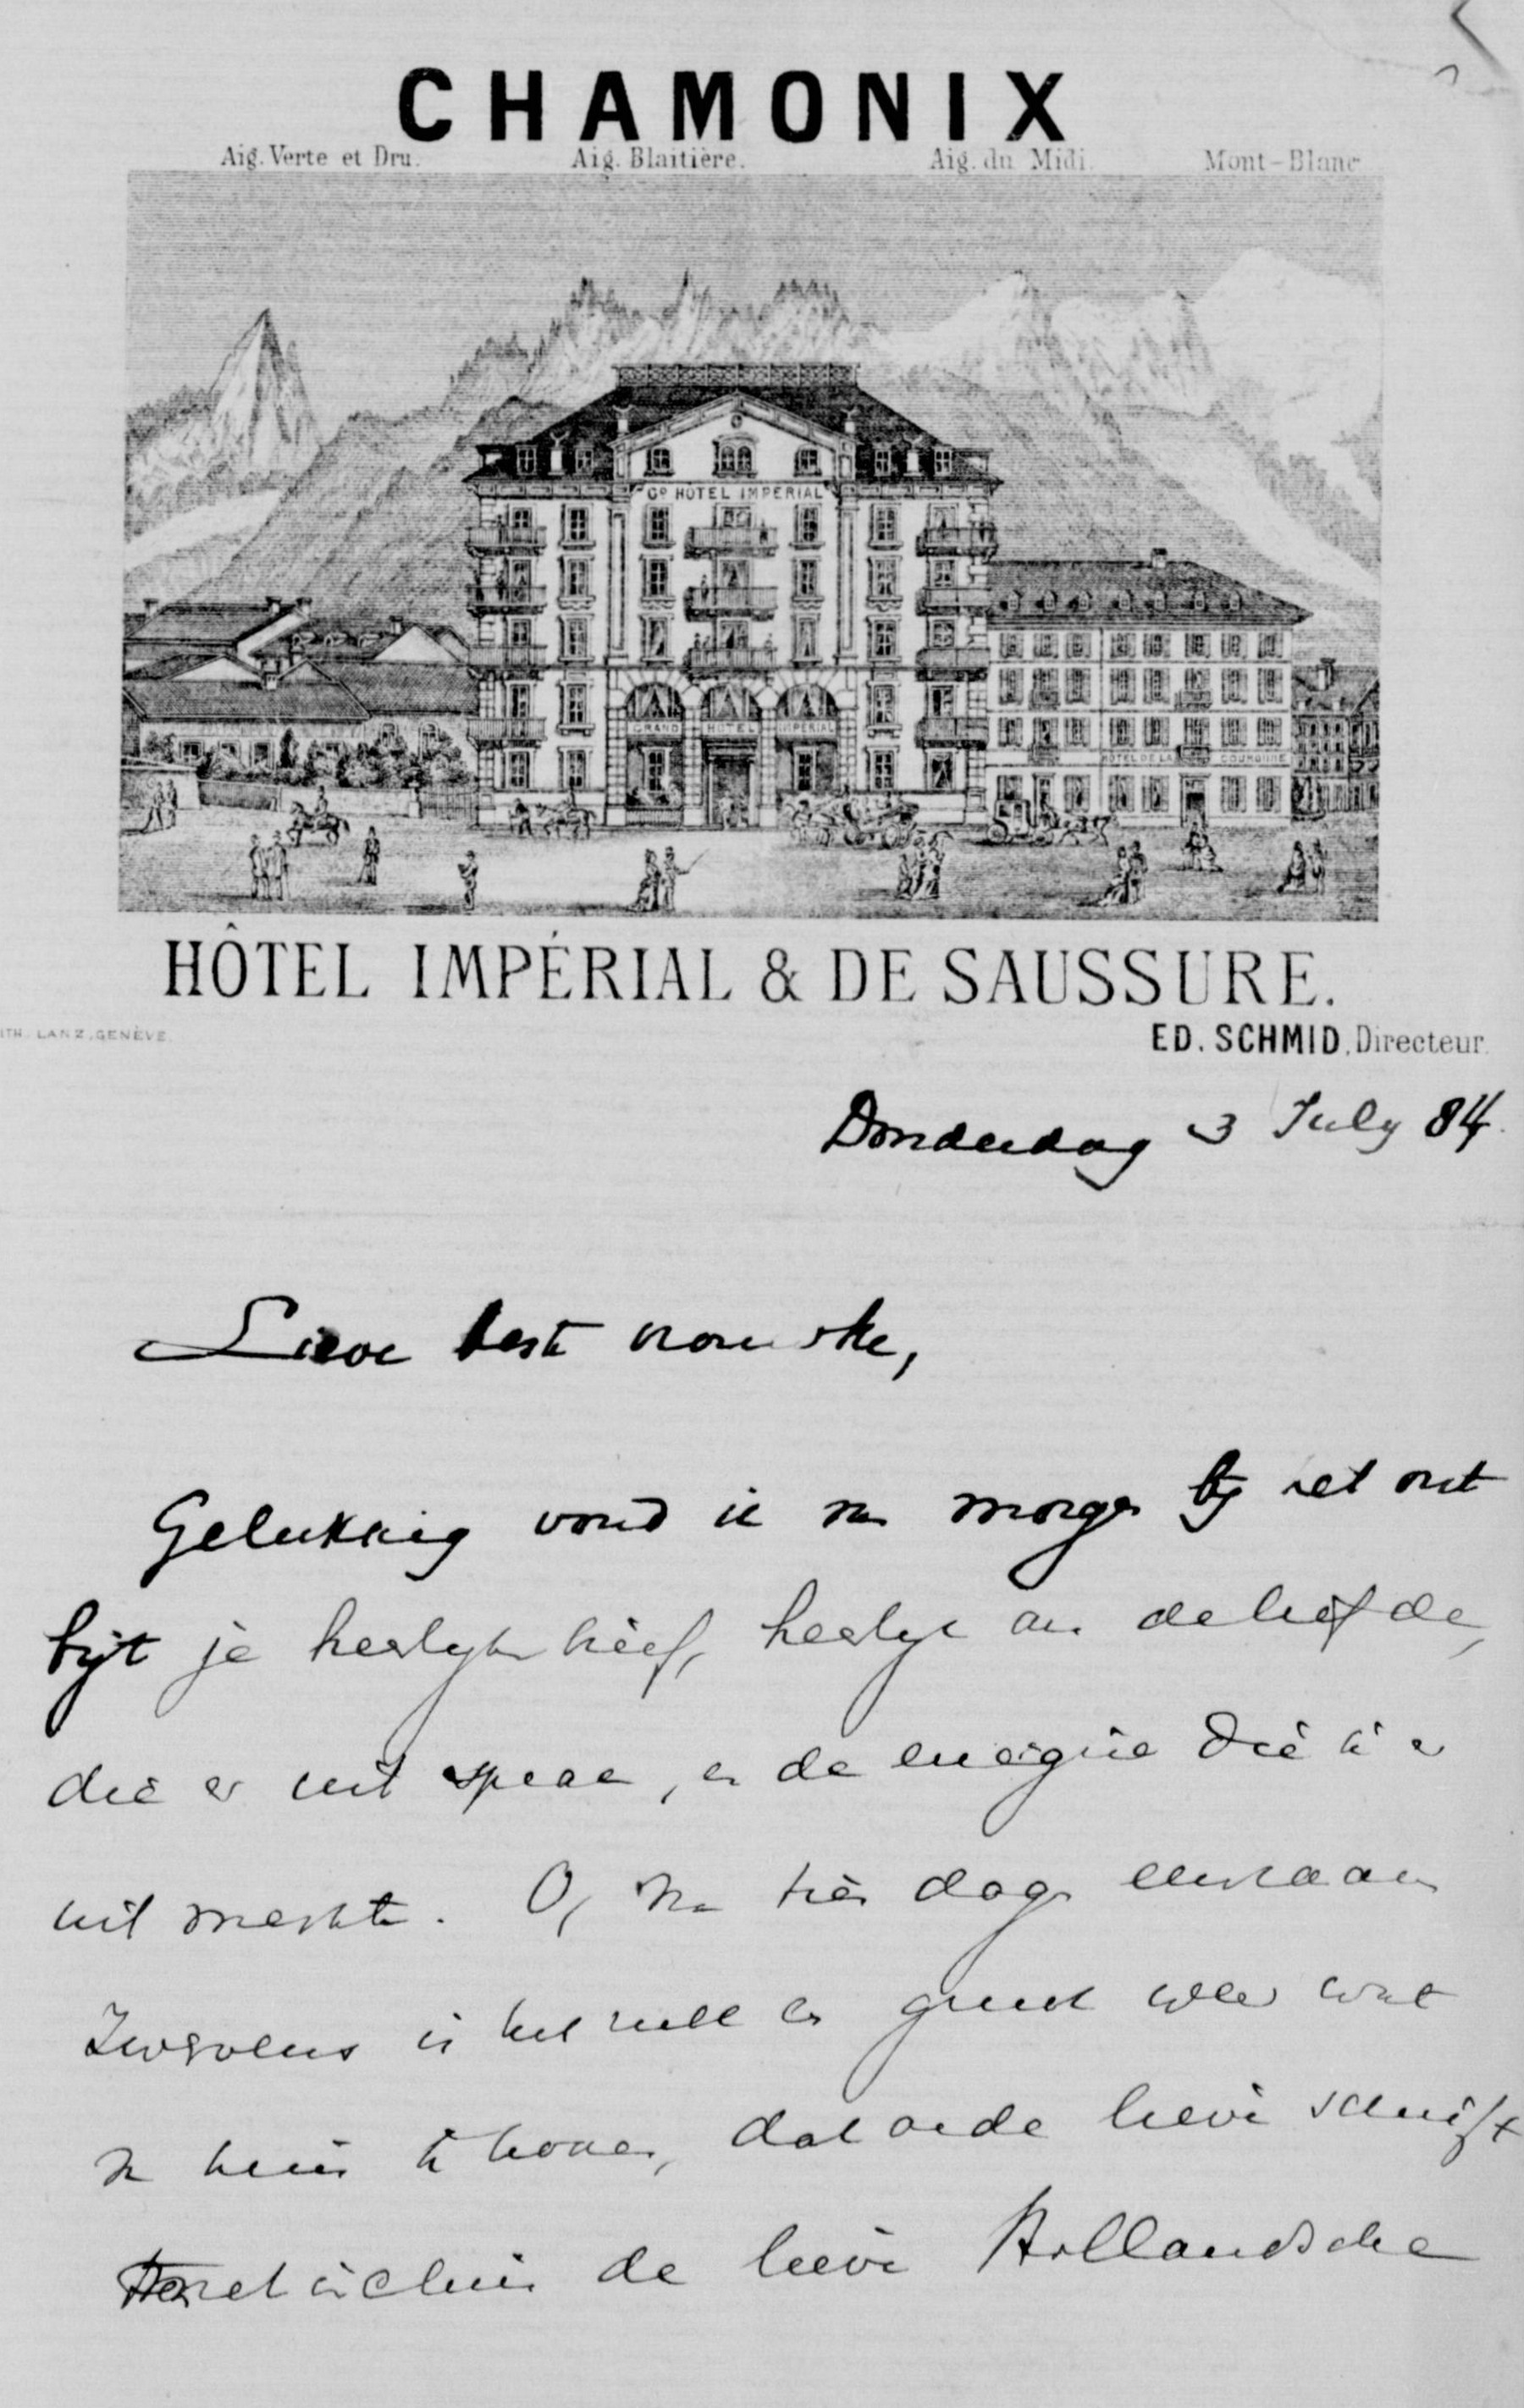 CHAMONIX
Aig. Verte et Dru. Aig. Blaitière. Aig. du Midi. Mont-Blanc
GD HOTEL IMPERIAL
GRAND HOTEL IMPERIAL
HOTEL DE LA COURONNE
HÔTEL IMPÉRIAL & DE SAUSSURE.
LITH. LANZ, GENÈVE.
ED. SCHMID, Directeur.
Donderdag 3 July 84.
Lieve beste vrouwke,
Gelukkig vond ik van morgen bij het ont
bijt je heerlyke brief, heerlyk om de liefde,
die er uit sprak, en de energie die ik er
uit merkte. O, na tien dagen
is het er weer wat
te hooren, dat oude lieve schrift
de lieve Hollandsche